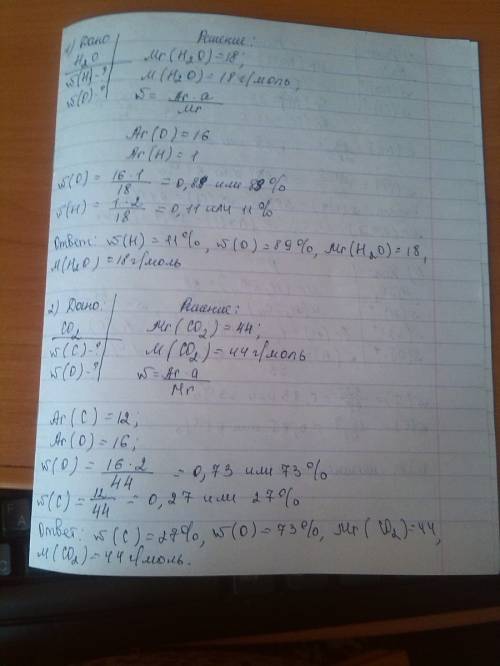 1) Дано: Решение:
H₂O Mr(H₂O)=18;
w(H)-? M(H₂O)=18г/моль;
w(O)-? w= Ar·a / Mr
Ar(O)=16
Ar(H)=1
w(O)= 16·1 / 18 =0,89 или 89%
w(H)= 1·2 / 18 =0,11 или 11%
Ответ: w(H)=11%, w(O)=89%, Mr(H₂O)=18,
M(H₂O)=18г/моль
2) Дано: Решение:
CO₂ Mr(CO₂)=44;
w(C)-? M(CO₂)=44г/моль
w(O)-? w= Ar·a / Mr
Ar(C)=12;
Ar(O)=16;
w(O)= 16·2 / 44 =0,73 или 73%
w(C)= 12 / 44 =0,27 или 27%
Ответ: w(C)=27%, w(O)=73%, Mr(CO₂)=44,
M(CO₂)=44г/моль.